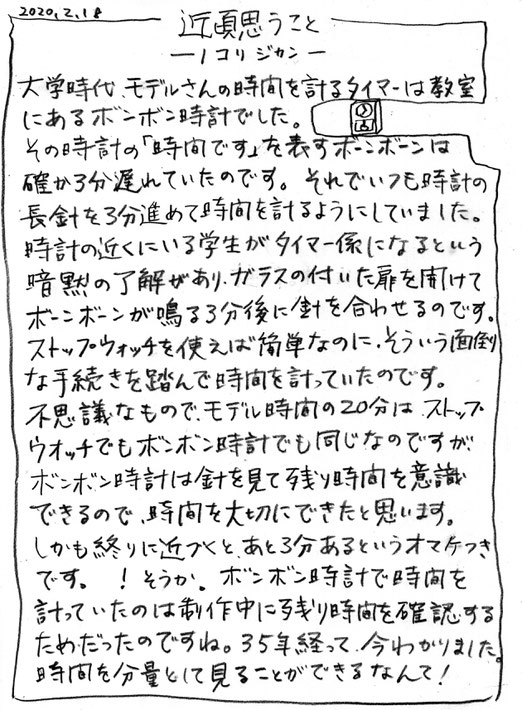 2020.2.18
近頃思うこと
ーノコリジカンー
大学時代、モデルさんの時間を計るタイマーは教室
にあるボンボン時計でした。
その時計の「時間です」を表すボーンボーンは
確か3分遅れていたのです。それでいつも時計の
長針を3分進めて時間を計るようにしていました。
時計の近くにいる学生がタイマー係になるという
暗黙の了解があり、ガラスの付いた扉を開けて
ボーンボーンが鳴る3分後に針を合わせるのです。
ストップウォッチを使えば簡単なのに、そういう面倒
な手続きを踏んで時間を計っていたのです。
不思議なもので、モデル時間の20分は、ストップ
ウオッチでもボンボン時計でも同じなのですが、
ボンボン時計は針を見て残り時間を意識
できるので、時間を大切にできたと思います。
しかも終りに近づくと、あと3分あるというオマケつき
です。！そうか。ボンボン時計で時間を
計っていたのは制作中に残り時間を確認する
ためだったのですね。35年経って、今わかりました。
時間を分量として見ることができるなんて！